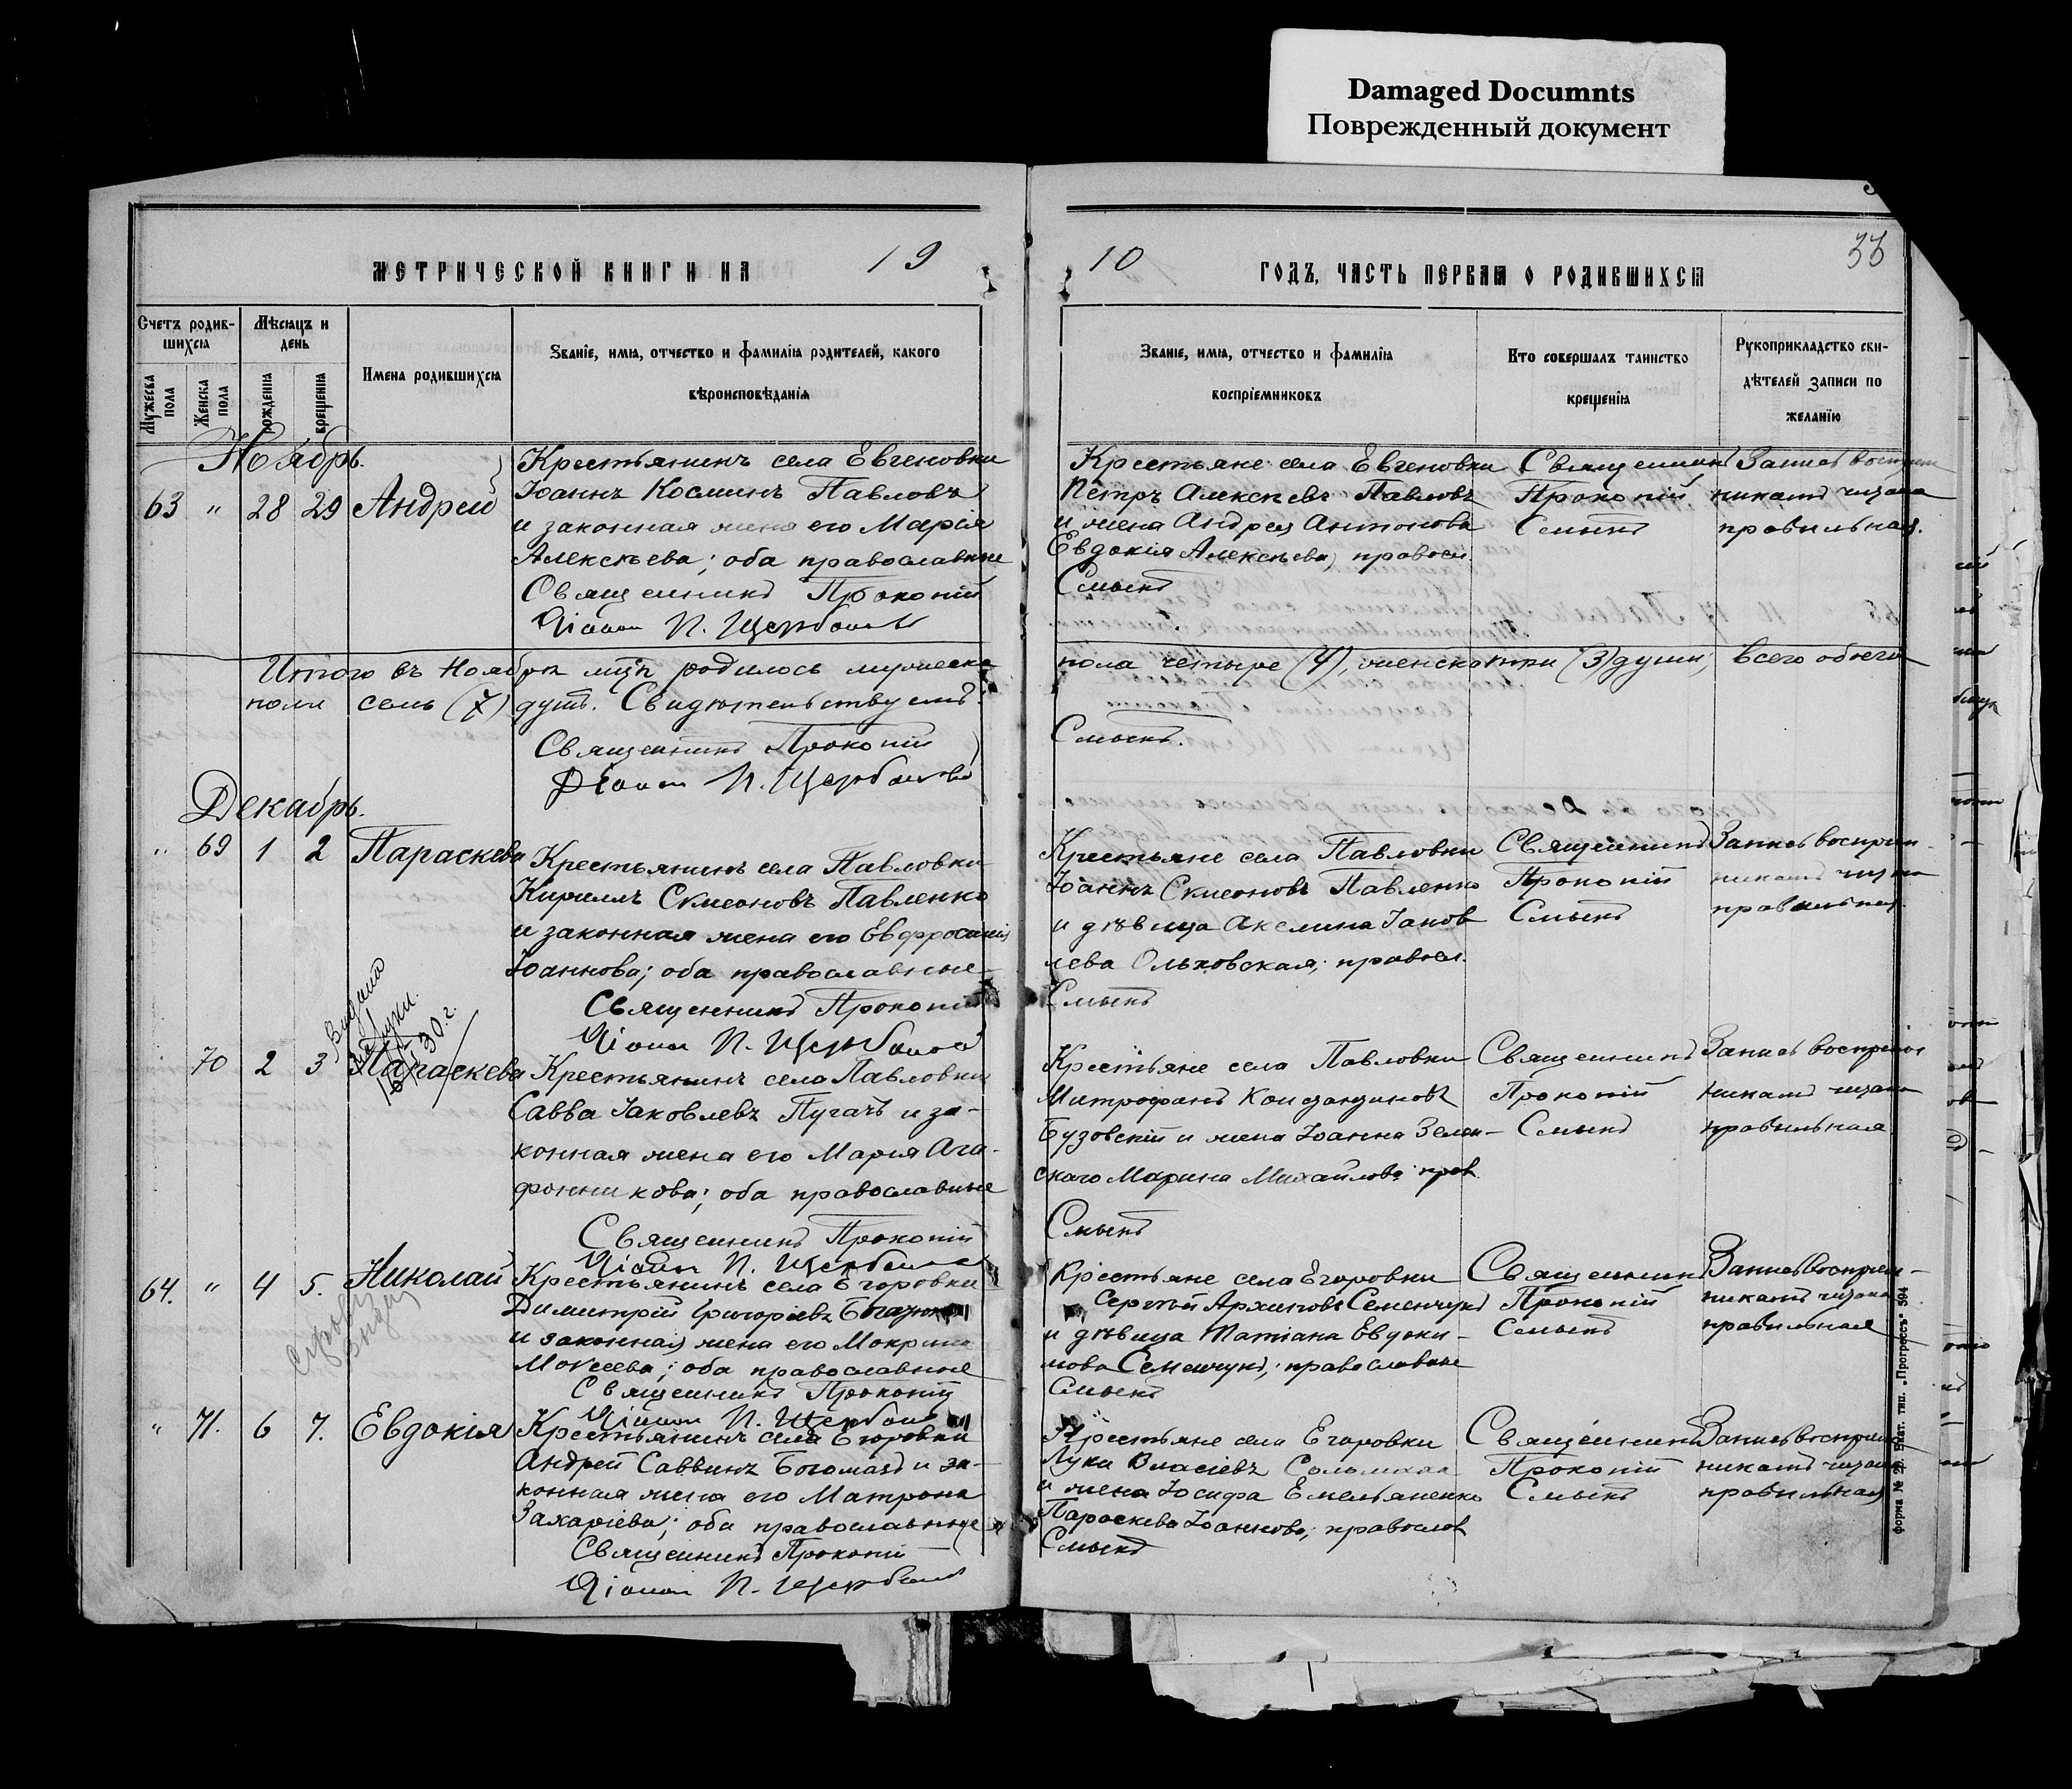 Damaged Documnts
Поврежденный документ
33
МЕТРИЧЕСКОЙ КНИГИ НА 19
10 ГОДЪ, ЧАСТЬ ПЕРВАЯ О РОДИВШИХСЯ
Счетъ родив-
шихся
Мужеска
пола
Женска
пола
Мѣсяцъ и
день
рожденія
крещенія
Имена родившихся
Званіе, имя, отчество и фамилія родителей, какого
вѣроисповѣданія
Званіе, имя, отчество и фамилія
воспріемниковъ
Кто совершалъ таинство
крещенія
Рукоприкладство сви-
дѣтелей записи по
желанію
Ноябрь.
63 " 28 29 Андрей
Крестьянинъ села Евгеновки
Іоаннъ Косминъ Павловъ
и законная жена его Марія
Алексѣева; оба православные
Священникъ Прокопій
П. Щербаковъ
Крестьяне села Евгеновки
Петръ Алексѣевъ Павловъ
и жена Андрея Антонова
Евдокія Алексѣева, правосл.
Смыкъ
Священникъ
Прокопій
Смыкъ
Запись воспріем
никамъ читана
правильная.
Итого въ Ноябрѣ мцѣ родилось мужеска
пола четыре (4), женска три (3) души, всего обоего
пола семь (7) душъ. Свидѣтельствуемъ:
Священникъ Прокопій
Смыкъ.
П. Щербаковъ
Декабрь.
" 69 1 2 Параскева
Крестьянинъ села Павловки
Кириллъ Симеоновъ Павленко
и законная жена его Евфросинія
Іоаннова; оба православные
Священникъ Прокопій
П. Щербаковъ
Крестьяне села Павловки
Іоаннъ Симеоновъ Павленко
и дѣвица Акелина Іаков
лева Ольховская; правосл.
Смыкъ
Священникъ
Прокопій
Смыкъ
Запись воспріем-
никамъ читана
правильная.
Видано
30.г.
70 2 3 Параскева
Крестьянинъ села Павловки
Савва Іаковлевъ Пугачъ и за-
конная жена его Марія Ага-
фонникова; оба православные
Священникъ Прокопій
П. Щербаковъ
Крестьяне села Павловки
Митрофанъ
Бузовскій и жена Іоанна Зелен-
скаго Марина Михайлова; прав.
Смыкъ
Священникъ
Прокопій
Смыкъ
Запись воспріем
никамъ читана
правильная
64. " 4 5. Николай
Крестьянинъ села Егоровки
Димитрій Григоріевъ
и законная жена его Мокрина
Моисеева; оба православные
Священникъ Прокопій
П. Щербаковъ
Крестьяне села Егоровки
Сергѣй Архиповъ Семенчукъ
и дѣвица Татіана Евдоки-
мова Семенчукъ; православные
Смыкъ
Священникъ
Прокопій
Смыкъ
Запись воспріем-
никамъ читана
правильная
" 71. 6 7. Евдокія
Крестьянинъ села Егоровки
Андрей Саввинъ Богомазъ и за-
конная жена его Матрона
Захаріева; оба православные
Священникъ Прокопій
П. Щербаковъ
Крестьяне села Егоровки
Лука Власіевъ
и жена Іосифа Емельяненко
Параскева Іоаннова; православ
Смыкъ
Священникъ
Прокопій
Смыкъ
Запись воспріем
никамъ читана
правильная
Форма № 20. Екат. тип. „Прогрессъ" 594